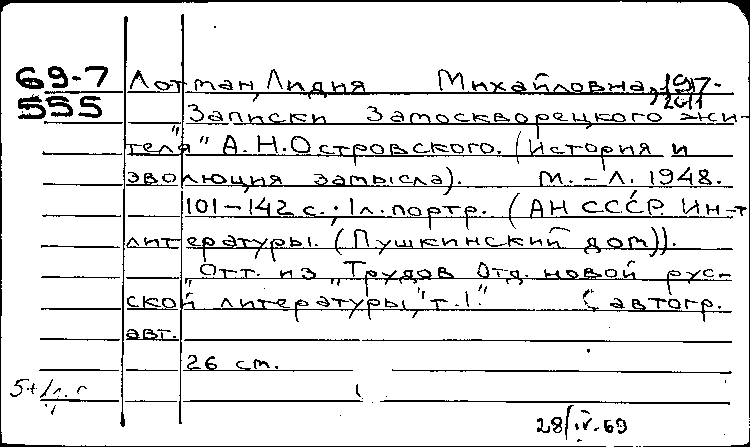 69-7 Лотман, Лидия Михайловна, 1917-
555 2011
"Записки Замоскворецкого жи-
теля" А.Н.Островского. (История и
эволюция замысла). М.-Л. 1948.
101-142 с.; 1л. портр. (АН СССР. Ин-т
литературы. (Пушкинский дом)).
Отт. из "Трудов Отд. новой рус-
ской литературы", т.1." С автогр.
авт.
26 см.
28/IV-69